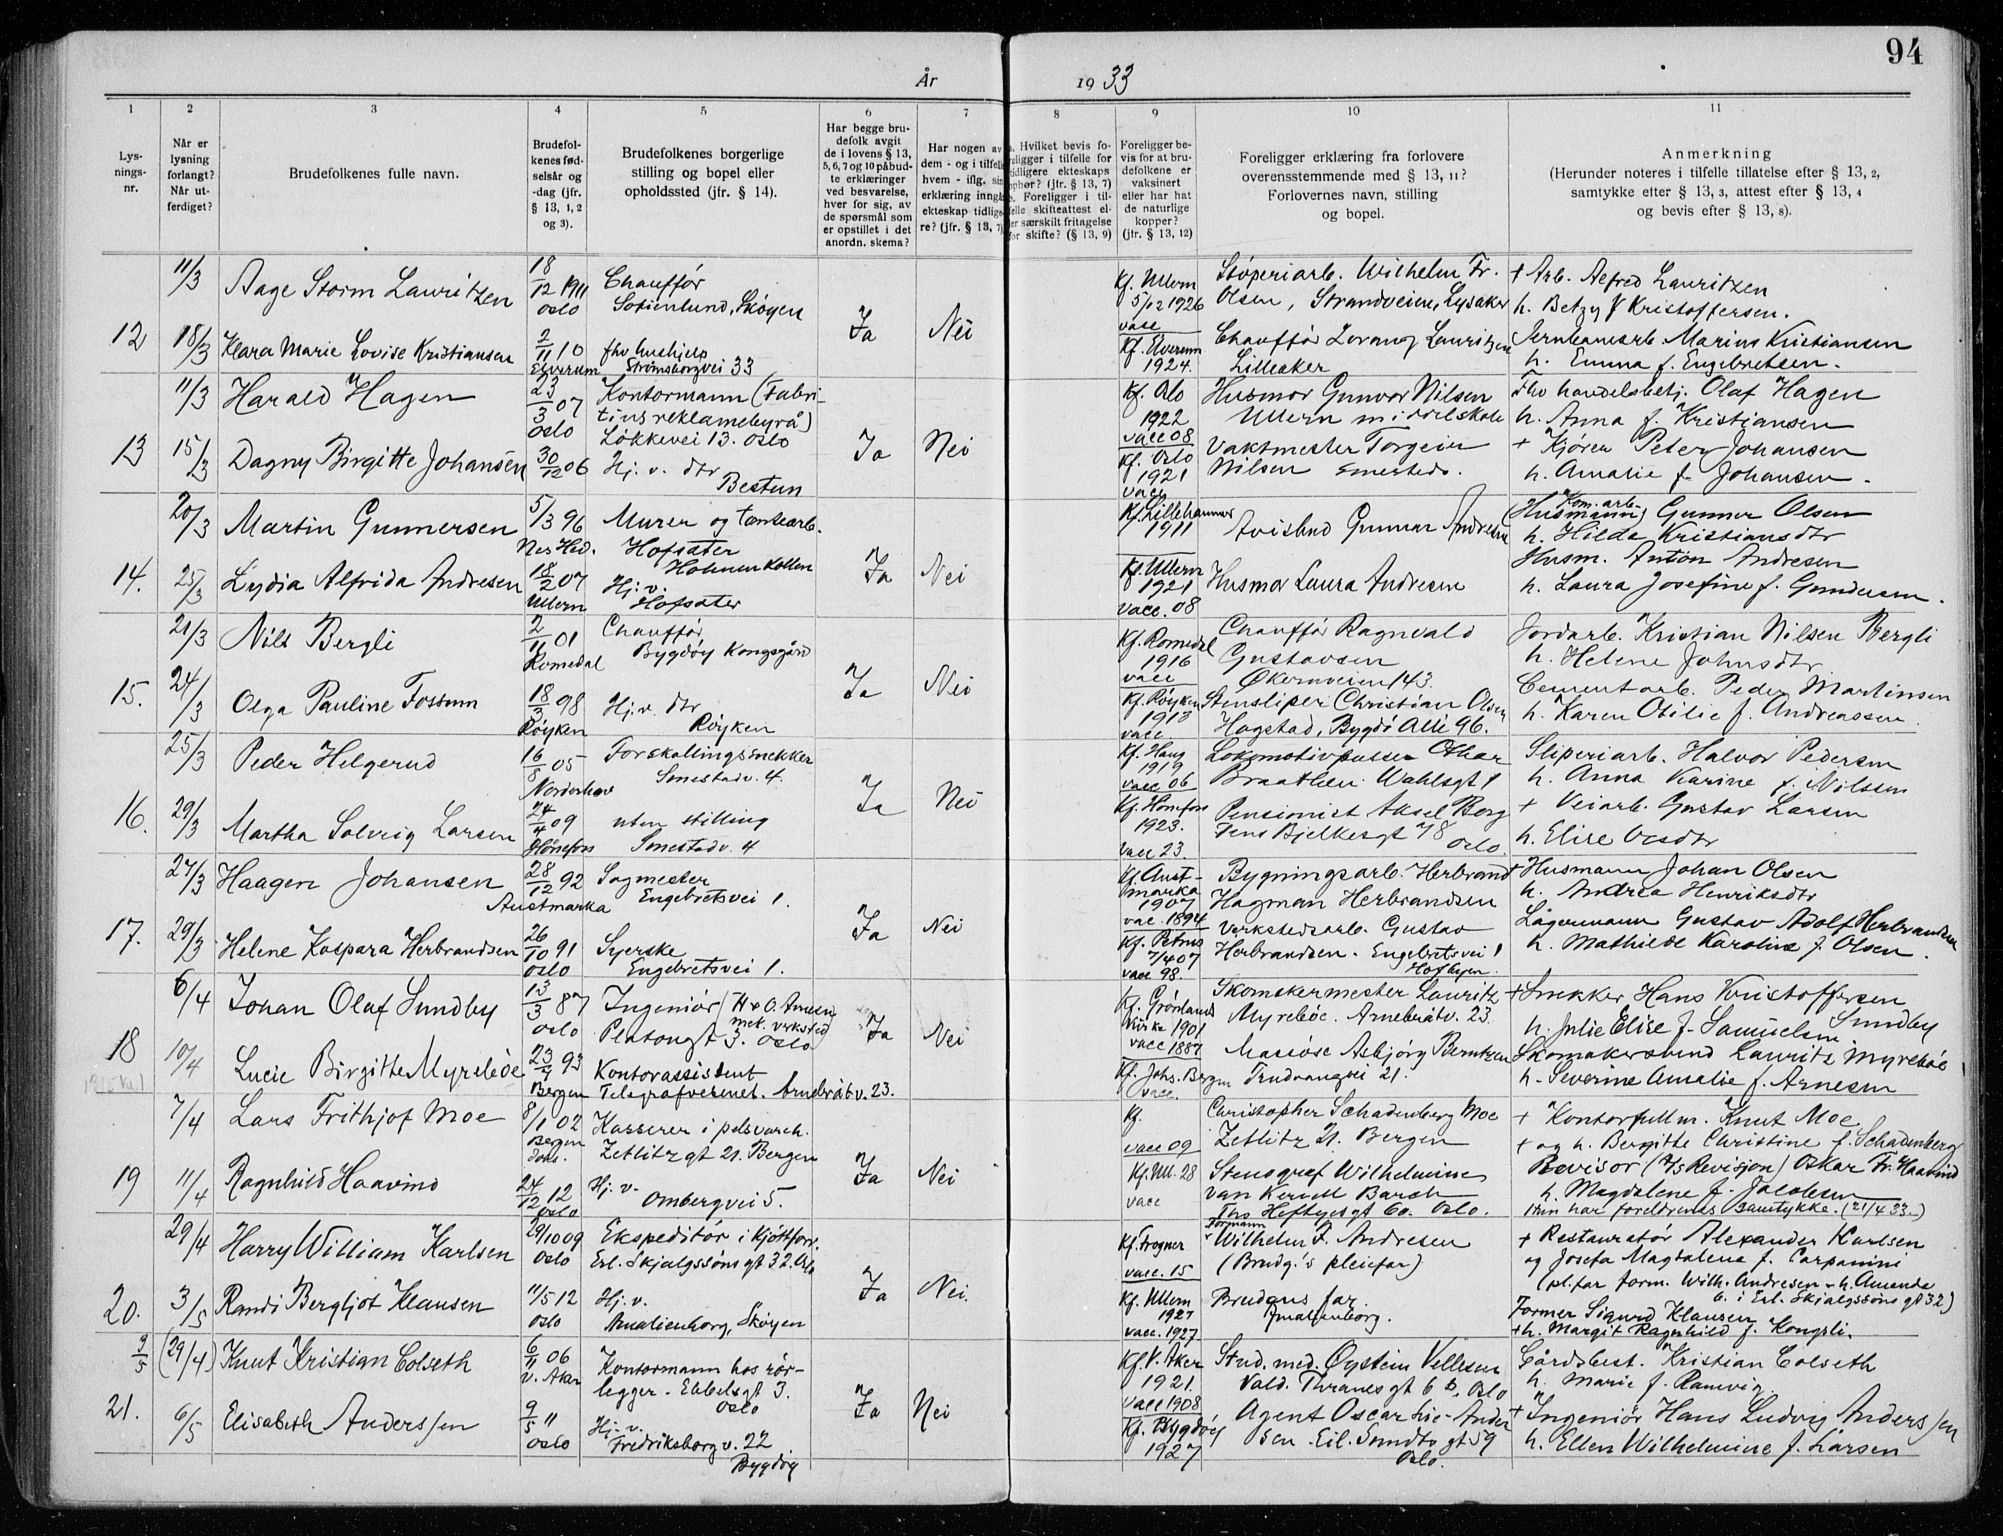 94
År 1933
1 2 3 4 5 6 7 8 9 10 11
Lys-
nings-
nr.
Når er
lysning
forlangt?
Når ut-
ferdiget?
Brudefolkenes fulle navn.
Brudefol-
kenes fød-
selsår og
-dag (jfr.
§ 13, 1, 2
og 3).
Brudefolkenes borgerlige
stilling og bopel eller
opholdssted (jfr. § 14).
Har begge bru-
defolk avgit
de i lovens § 13,
5, 6, 7 og 10 påbud-
te erklæringer
ved besvarelse,
hver for sig, av
de spørsmål som
er opstillet i det
anordn. skema?
Har nogen av
dem - og i tilfelle
hvem - iflg. sin
erklæring inngå
ekteskap tidlige-
re? (jfr. § 13, 7)
Hvilket bevis fo-
religger i tilfelle for
tidligere ekteskaps
ophør? (jfr. § 13, 7)
Foreligger i til-
felle skifteattest el-
ler særskilt fritagelse
for skifte? (§ 13, 9)
Foreligger be-
vis for at bru-
defolkene er
vaksinert
eller har hat
de naturlige
kopper?
(jfr. § 13, 12)
Foreligger erklæring fra forlovere
overensstemmende med § 13, 11?
Forlovernes navn, stilling
og bopel.
Anmerkning
(Herunder noteres i tilfelle tillatelse efter § 13, 2,
samtykke efter § 13, 3, attest efter § 13, 4
og bevis efter § 13, 8).
12
11/3 Aage Storm Lauritzen 18/12 1911 Oslo
Chauffør
Sofienlund, Skøyen
Ja Nei
Kf. Ullern
5/12 1926
vacc
Støperiarb. Wilhelm Fr.
Olsen, Strandveien, Lysaker
+ Arb. Alfred Lauritzen
h. Betzy f. Kristoffersen.
18/3 Klara Marie Lovise Kristiansen 2/11 10 Elverum
fhv hushjelp
Strømsborgvei 33
Kf. Elverum
1924.
Chauffør Lorang Lauritzen
Lilleaker
Jernbanearb Marius Kristiansen
h. Emma f. Engebretsen.
13
11/3 Harald Hagen 23/3 07 Oslo
Kontormann (Fabri-
tius reklamebyrå)
Løkkevei 13. Oslo
Ja Nei
Kf. Oslo
1922
vacc 08
Husmor Gunvor Nilsen
Ullern middelskole
Fhv handelsbetj. Olaf Hagen
h. Anna f. Kristiansen
15/3 Dagny Birgitte Johansen 30/12 06
Hj. v. dtr
Bestum
Kf. Oslo
1921
vacc
Vaktmester Torgeir
Nilsen smesteds.
+ Kjører Peter Johansen
h. Amalie f. Johansen.
14.
20/3 Martin Gunnersen 5/3 96 Nes Hed.
Murer og tomtearb.
Hofsæter
Holmenkollen
Ja Nei
Kf. Lillehammer
1911
Avisbud Gunnar Andresen
Kom. arb.
(Husmann) Gunner Olsen
h. Hilda Kristiansdtr
25/3 Lydia Alfrida Andresen 18/2 07 Ullern
Hj. v.
Hofsæter
Kf. Ullern
1921
vacc. 08
Husmor Laura Andresen
Husm. Anton Andresen
h. Laura Josefine f. Gundersen.
15.
21/3 Nils Bergli 2/11 01 Romedal
Chauffør
Bygdøy Kongsgård
Ja Nei
Kf. Romedal
1916
vacc
Chauffør Ragnvald
Gustavsen
Økernveien 143.
Jordarb. Kristian Nilsen Bergli
h. Helene Johnsdtr
24/3 Olga Pauline Fossum 18/3 98 Røyken
Hj. v. dtr
Røyken
Kf. Røyken
1913
vacc
Stensliper Christian Olsen
Hagstad, Bygdö Allé 96.
Cementarb. Peder Martinsen
h. Karen Otilie f. Andreassen
16.
25/3 Peder Helgerud 16/8 05 Norderhov
Forskallingssnekker
Smestadv. 4.
Ja Nei
Kf. Haug
1919
vacc 06
Lokomotivpusser Othar
Braathen. Wahlsgt 1
Sliperiarb. Halvor Pedersen
h. Anna Karine f. Nilssen
29/3 Martha Solveig Larsen 24/4 09 Hønefoss
uten stilling
Smestadv. 4
Kf. Hønefoss
1923.
vacc 23.
Pensionist Aksel Borg
Jens Bjelkesgt 78
Oslo.
+ Veiarb. Gustav Larsen
h. Elise Olsdtr
17.
27/3 Haagen Johansen 28/12 92 Austmarka
Sagmester
Engebretsvei 1.
Ja Nei
Kf. Aust-
marka
1907
vac. 1894
Bygningsarb. Herbrand
Hagman Herbrandsen
+ Husmann Johan Olsen
h. Andrea Henriksdtr
29/3 Helene Kaspara Herbrandsen 26/10 91 Oslo
Syerske
Engebretsvei 1.
Kf. Petrus
7/4 07
vacc 98.
Verkstedsarb. Gustav
Herbrandsen. Engebretsvei 1
Hofbyen.
Lagermann Gustav Adolf Herbrandsen
h. Mathilde Karoline f. Olsen.
18
6/4 Johan Olaf Sundby 13/3 87 Oslo
Ingeniør (H & O. Arnesen
mek. verksted
Platousgt 3. Oslo
Ja Nei
Kf. Grønlands
Kirke 1901
vacc 1887
Skomakermester Lauritz
Myrebøe. Arnebråtv. 23
+ Snekker Hans Kristoffersen
Sundby
h. Julie Elise f. Samuelsen
10/4 Lucie Birgitte Myrebøe 23/7 93 Bergen
Kontorassistent
Telegrafvesenet. Arnebråtv. 23.
Kf. Johs. Bergen
vacc.
Massøse Asbjørg Berntsen
Trudvangvei 21.
Skomakersvend Lauritz Myrebøe
h. Severine Amalie f. Arnesen
19
7/4 Lars Frithjof Moe 8/1 02 Bergen Joh's.
Kasserer i pelsvareh.
Zetlitzgt 21. Bergen
Ja Nei
Kf.
vacc 09
Christopher Schadenberg Moe
Zetlitz 21. Bergen
+ Kontorfullm. Knut Moe
+ og h. Bergitte Christine f. Schadenberg
11/4 Ragnhild Haavind 24/12 12 Oslo
Hj. v.
Ombergvei 5.
Kf. Ull. 28
vacc
Stenograf Wilhelmine
van Kervel Barth
Ths Heftyesgt 60. Oslo.
Revisor (A/S Revisjon) Oskar Fr. Haavind
h. Magdalene f. Jacobsen
Hun har foreldrenes samtykke. (21/4 33.)
20.
29/4 Harry William Karlsen 29/10 09 Oslo
Ekspeditør i Kjøttforr.
Erl. Skjalgssøns gt 32. Oslo
Ja Nei.
Kf. Frogner
vacc. 15
Formann
Wilhelm F. Andresen
(Brudg.'s pleiefar)
+ Restauratør Alexander Karlsen
og Josefa Magdalena f. Carpanini
(pl.far form. Wilh. Andresen - h. Amanda
b. i Erl. Skjalgssøns gt 32)
3/5 Randi Bergljot Klausen 11/5 12 Oslo
Hj. v.
Amalienborg, Skøyen
Kf. Ullern
1927
vacc. 1927
Brudens far
Amalienborg.
Former Sigurd Klausen
+ h. Margit Ragnhild f. Kongsli.
21.
2/5 (29/4) Knut Kristian Colseth 6/11 06 V. Aker
Kontormann hos rør-
legger - Ebbelsgt 3.
Oslo
Ja Nei
Kf. V. Aker
1921.
vacc 1908
Stud. med. Øystein Vellesen
Vald. Thranesgt 6 b, Oslo
Gårdsbest. Kristian Colseth
h. Marie f. Ramvig
6/5 Elisabeth Anderssen 9/5 11 Oslo
Hj. v.
Fredriksborgv. 22
Bygdøy
Kf. Bygdøy
1927
Agent Oscar Lie-Ander
sen. Eil. Sundts gt 59
Oslo.
+ Ingeniør Hans Ludvig Anderssen
h. Ellen Wilhelmine f. Larsen